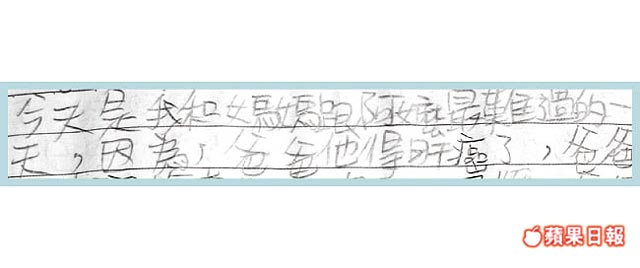 今天是我和媽媽跟阿嬤最難過的一
天，因為，爸爸他得肝癌了，爸爸
蘋果日報